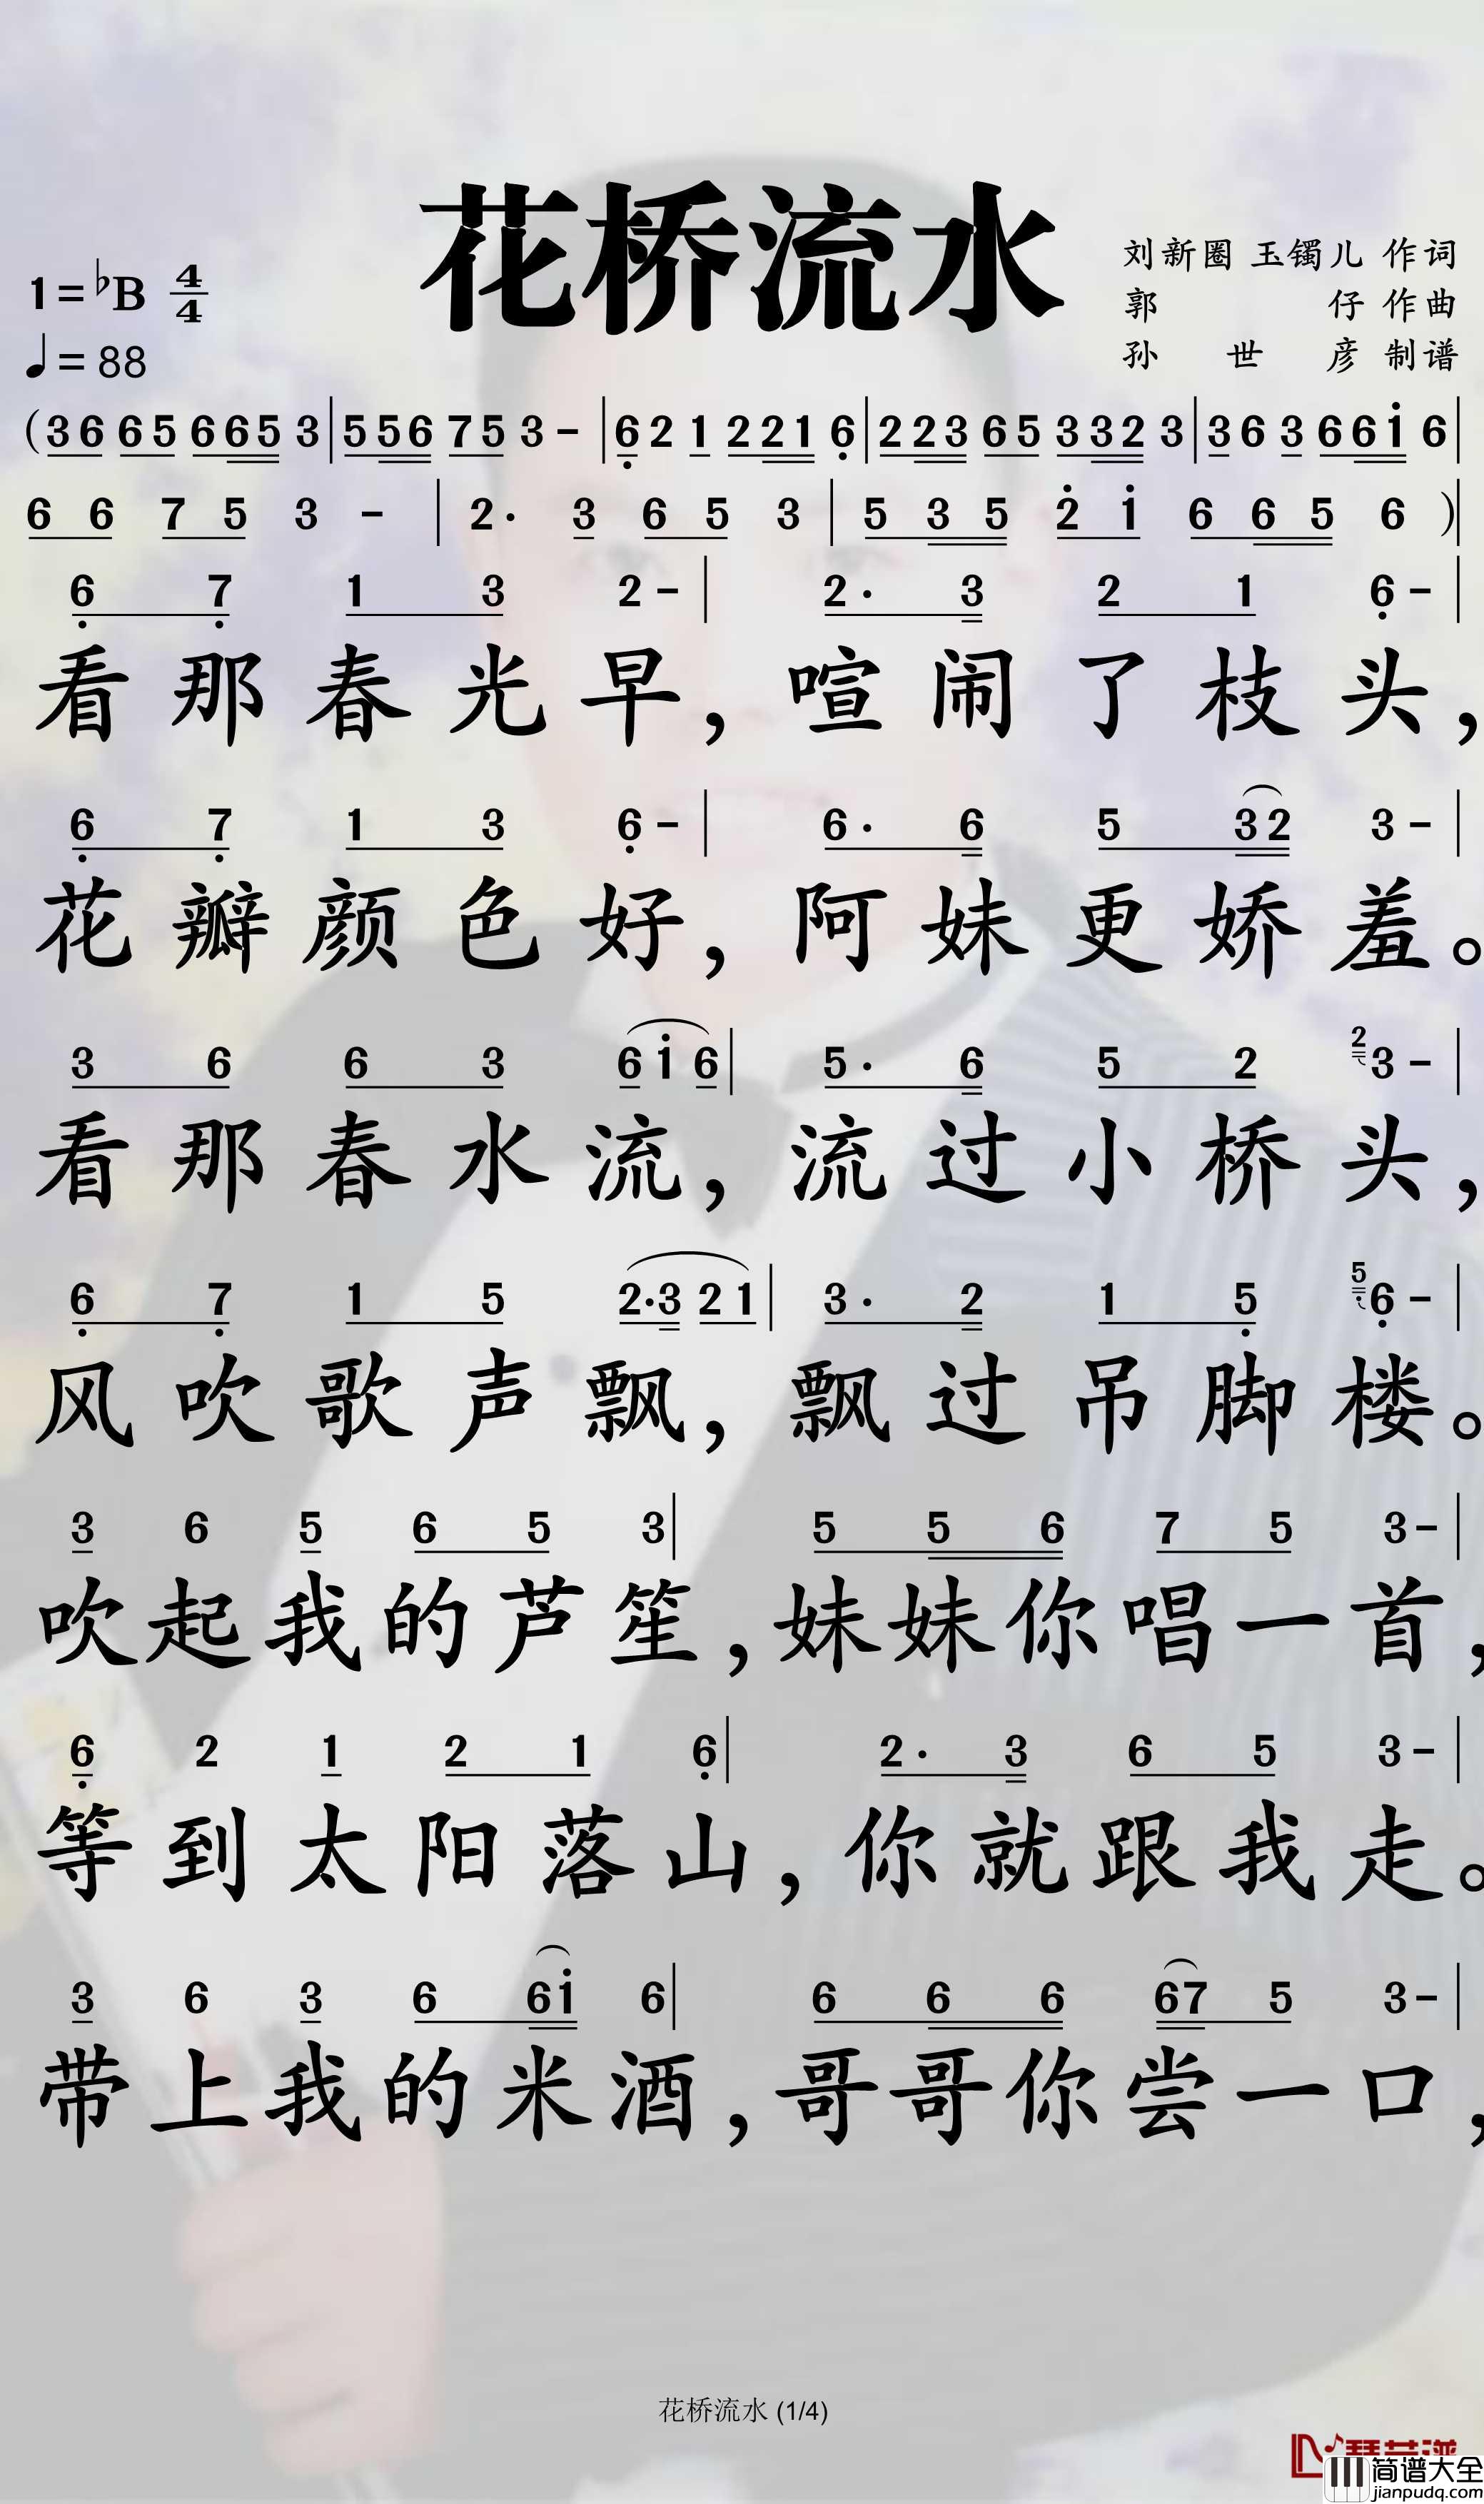 花桥流水
刘新圈 玉镯儿 作词
1=♭B 4/4
郭 仔 作曲
♩=88
孙 世 彦 制谱
(36 65 665 3|556 75 3-|6̣2 1 221 6̣|223 65 332 3|3 6 3 66i̇ 6|
6 6 7 5 3 -|2· 3 6 5 3|5 3 5 2̇ i̇ 6 6 5 6 )|
6̣ 7̣ 1 3 2-|2· 3 2 1 6̣-|
看那春光早，喧闹了枝头，
6̣ 7̣ 1 3 6̣-|6· 6 5 32 3-|
花瓣颜色好，阿妹更娇羞。
3 6 6 3 6i̇6|5· 6 5 2 2 3-|
看那春水流，流过小桥头，
6̣ 7̣ 1 5 2·3 21|3· 2 1 5̣ 5̣ 6̣-|
风吹歌声飘，飘过吊脚楼。
3 6 5 6 5 3|5 5 6 7 5 3-|
吹起我的芦笙，妹妹你唱一首，
6̣ 2 1 2 1 6̣|2· 3 6 5 3-|
等到太阳落山，你就跟我走。
3 6 3 6 6i̇ 6|6 6 6 67 5 3-|
带上我的米酒，哥哥你尝一口，
花桥流水 (1/4)
简谱大全
jianpudq.com